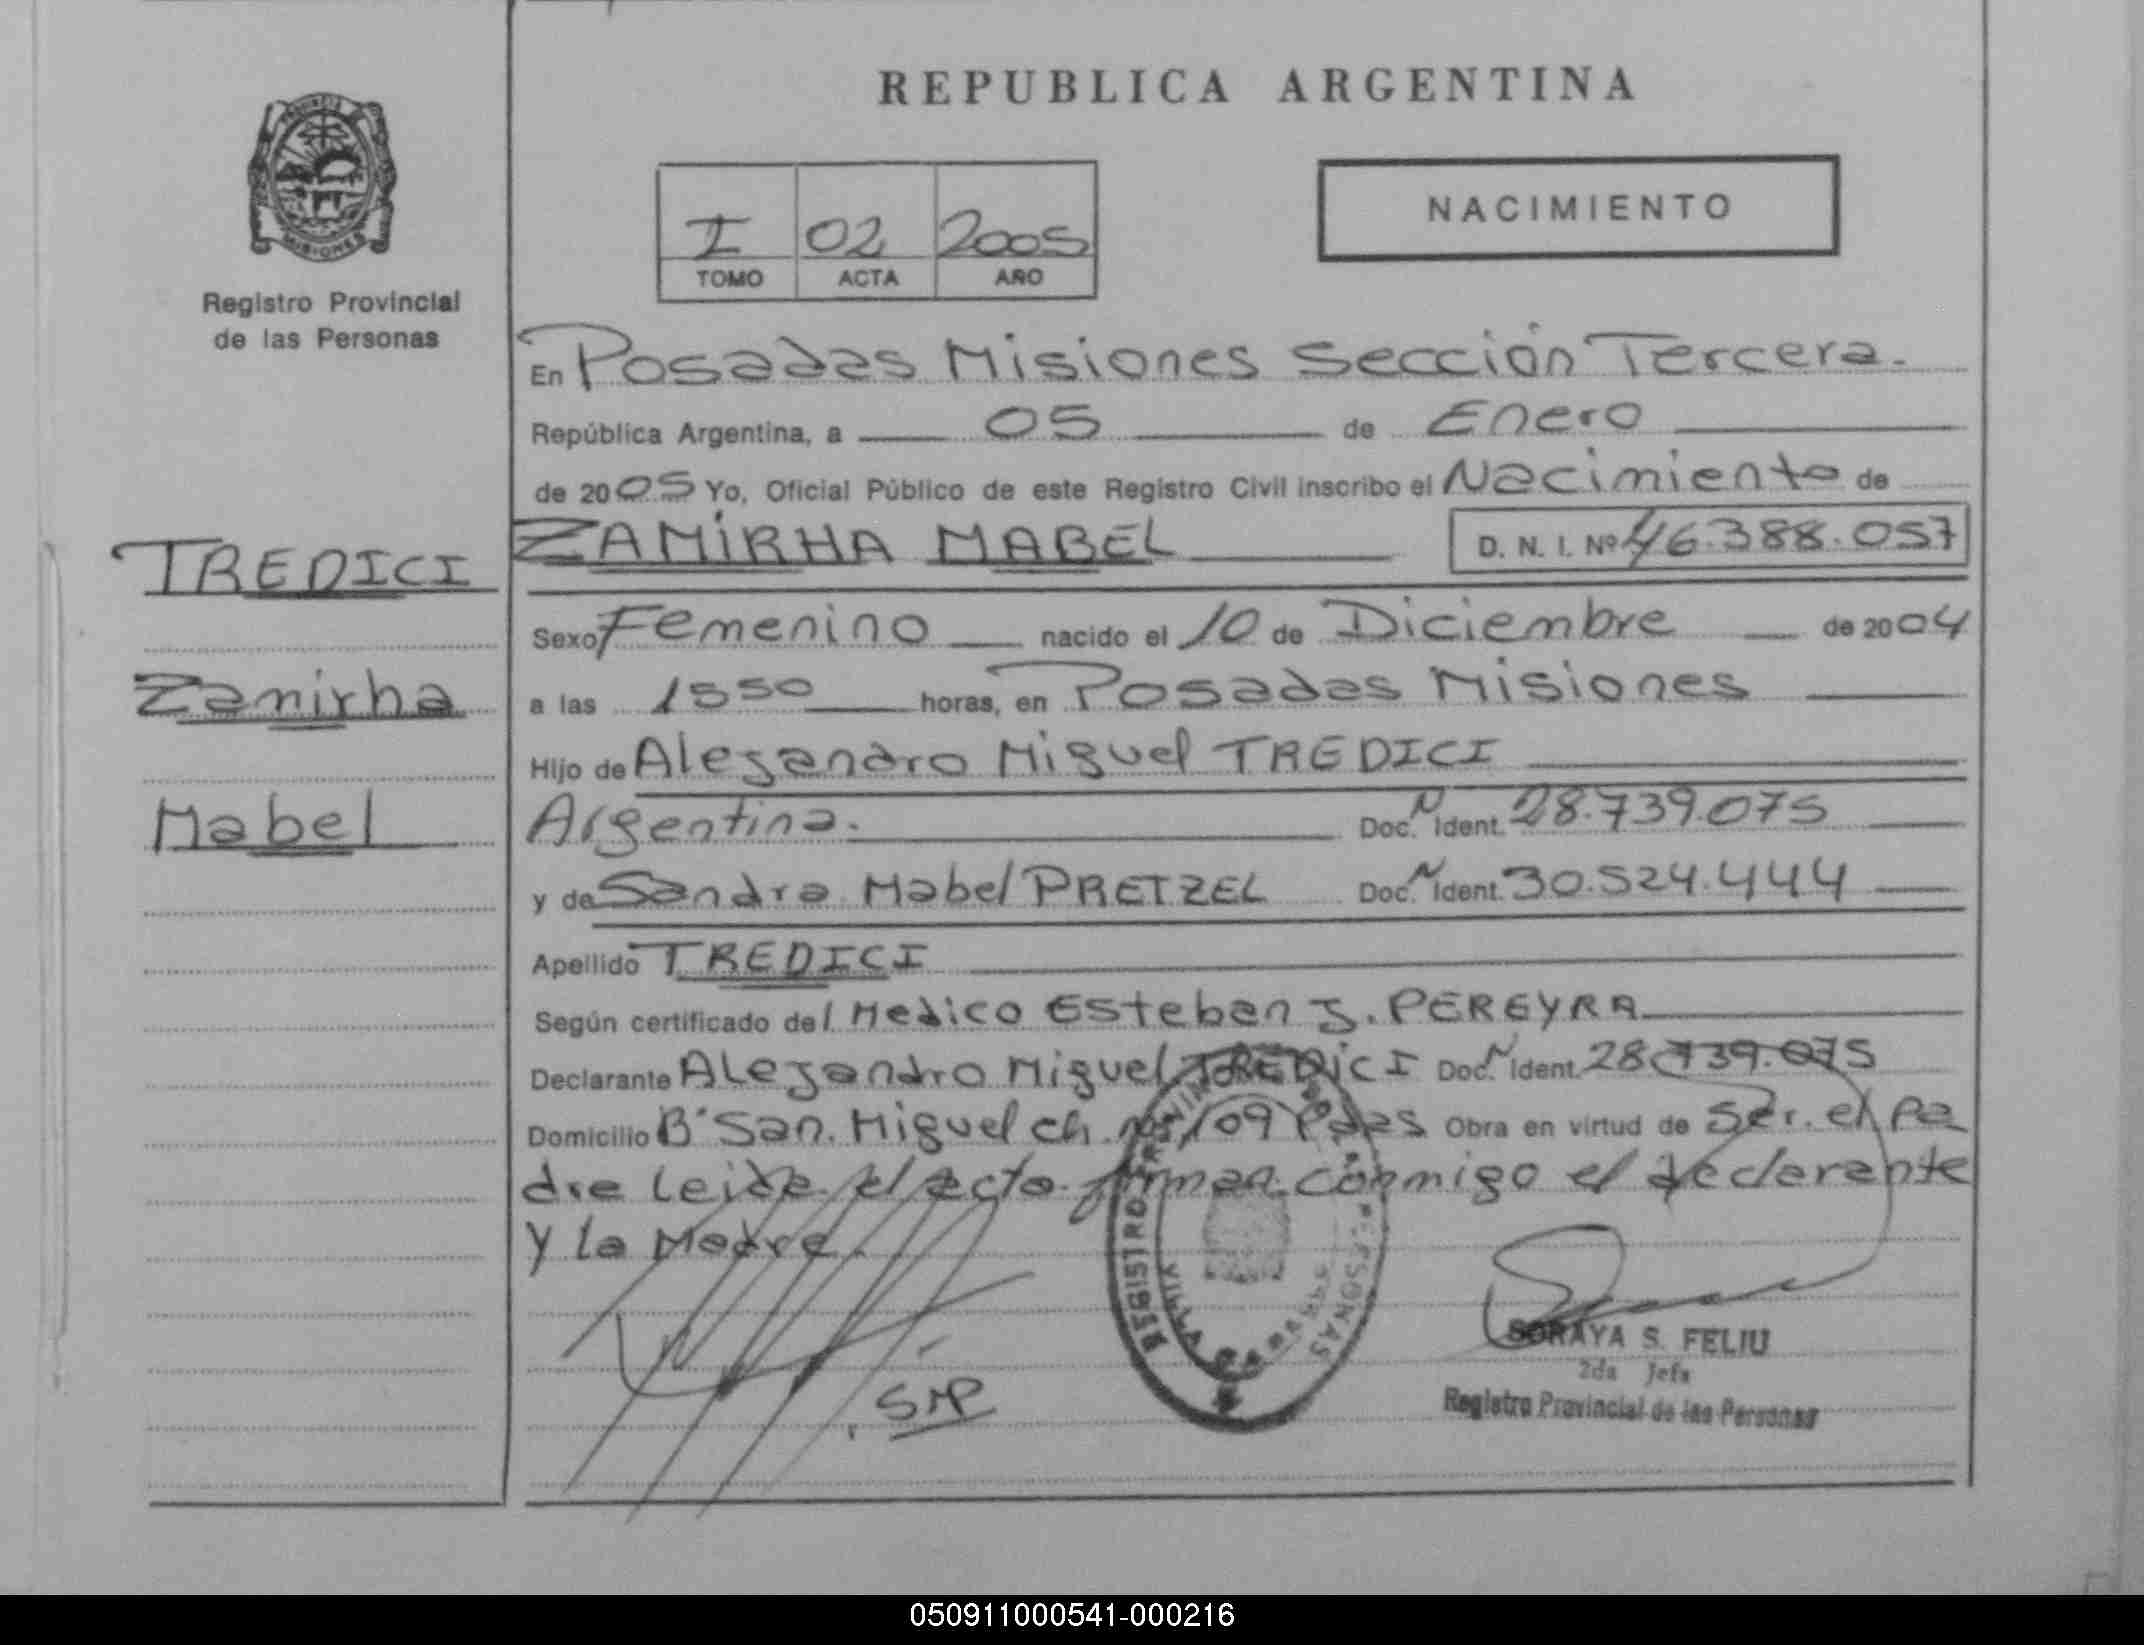 REPUBLICA ARGENTINA
NACIMIENTO
I 02 2005
TOMO ACTA AÑO
Registro Provincial
de las Personas
En Posadas Misiones Sección Tercera.
República Argentina, a 05 de Enero
de 2005 Yo, Oficial Público de este Registro Civil inscribo el Nacimiento de
ZAMIRHA MABEL D. N. I. Nº 46.388.057
TREDICI
Zamirha
Mabel
Sexo Femenino nacido el 10 de Diciembre de 2004
a las 1550 horas, en Posadas Misiones
Hijo de Alejandro Miguel TREDICI
Argentina. Doc. N Ident. 28.739.075
y de Sandra Mabel PRETZEL Doc. N Ident. 30.524.444
Apellido TREDICI
Según certificado del Medico Esteban J. PEREYRA
Declarante Alejandro Miguel TREDICI Doc. N Ident. 28.739.075
Domicilio Bº San Miguel ch. 109 Pdas Obra en virtud de Ser el Pa
dre Leida el acta firman conmigo el declarante
y la Madre.
SMP
REGISTRO PERSONAS
VILLA
SORAYA S. FELIU
2da Jefa
Registro Provincial de las Personas
050911000541-000216